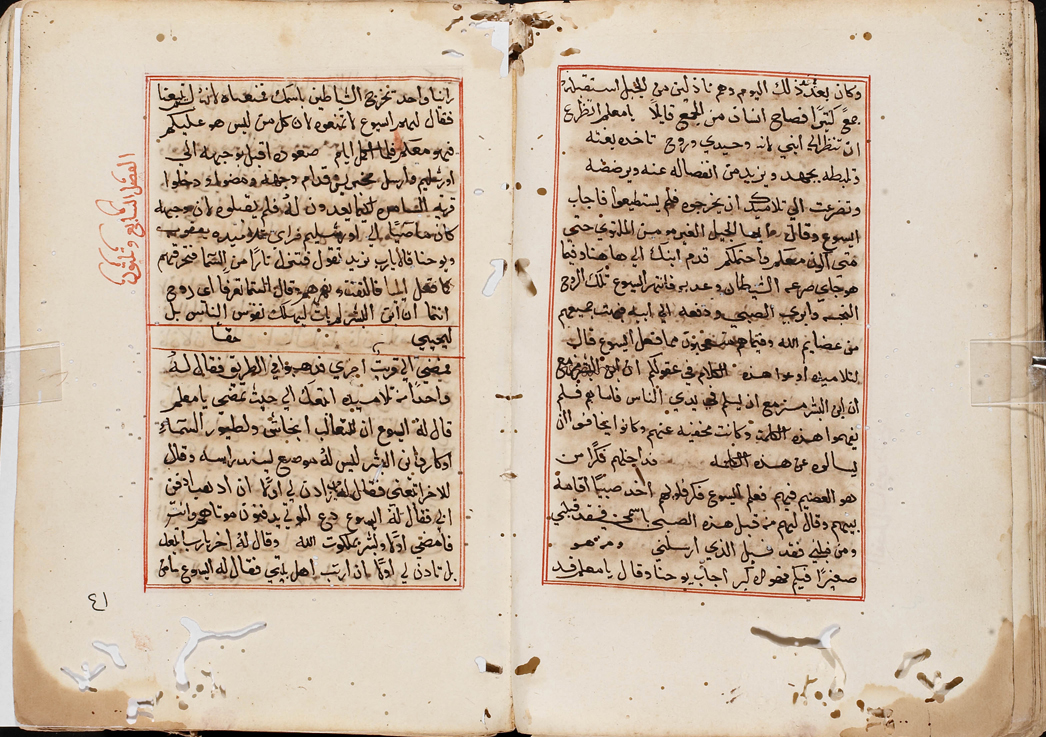 وكان بعد ذلك اليوم وهم نازلين من الجبل استقبله
جمع كثير افصاح انسان من الجمع قايلاً يا معلم انظرع
ان تنظر الى ابني لانه وحيدي وروح تاخده بغته
وتلبطه بجهد ويزيد من انفصاله عنه ويرضضه
وتضرعت الى تلاميدك ان يخرجوه فلم يستطيعوا فاجاب
اليسوع وقال يا ايها الجيل الغير مومن الملتوي حتى
متى اكون معكم واحتملكم قدم ابنك الى هاهنا وفيما
هو جاي صرعه الشيطان وعدبه فانتهر اليسوع تلك الروح
النجسه وابرى الصبي ودفعه الى ابيه فبهت جميعهم
من عضايم الله وفيما هم متعجبون مما فعل اليسوع قال
لتلاميده اوعوا هذه الكلام في عقولكم
ان ابن البشر مزمع ان يسلم في يدي الناس فاما هم فلم
يفهموا هذه الكلمة وكانت مخفيه عنهم وكانوا يخافوا ان
يسالوه عن هذه الكلمه فداخلهم فكرًا من
هو العضيم فيهم فعلم اليسوع فكر قلوبهم اخد صبيًا اقامة
بينهم وقال لهم من قبل هذه الصبي باسمي فقد قبلني
ومن قبلني فقد قبل الذي ارسلني ومن هو
صغيرًا فيكم فهو اكبر اجاب يوحنا وقال يا معلم قد
راينا واحد تخرج الشياطين باسمك فمنعناه لانه لم يتبعنا
فقال لهم اليسوع لا تمنعوه لان كل من ليس هو عليكم
فهو معكم فلما كمل ايام صعوده اقبل بوجهه الى
اورشليم وارسل مخبرين قدام وجهه ومضوا ودخلوا
قريه السامره لكيما يعدون له فلم يقبلوه لان وجهه
كان ماضيًا الى اورشليم فراى تلاميده يعقوب
ويوحنا قالا يا رب تريد نقول فتنزل نارًا من السما فتحرقهم
كما فعل ايليا فالتفت نهرهم وقال لستما تعرفا اى روح
انتما ان ابن البشر لم يات ليهلك نفوس الناس بل
ليحيي حقا
الفصل السابع وثلثون
فمضى الى قريت اخرى فدهبوا في الطريق فقال له
واحدًا من تلاميده اتبعك الى حيث تمضي يا معلم
قال له اليسوع ان للثعالب ابخاش ولطيور السماء
اوكار وابن البشر ليس له موضع ليسند راسه وقال
للاخر اتبعني فقال له ادن لي اولًا ان ادهب ادفن
ابي فقال له اليسوع دع الموتى يدفنون موتاهم وانت
فامضي اولًا وبشر بملكوت الله وقال له اخر يا رب اتبعك
بل تادن لي اولًا بان ارتب اهل بيتي فقال له اليسوع ما من
٤١